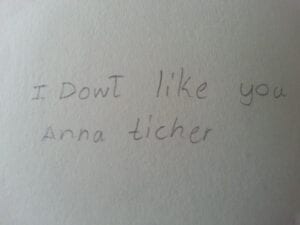 I Dowt like you
Anna ticher